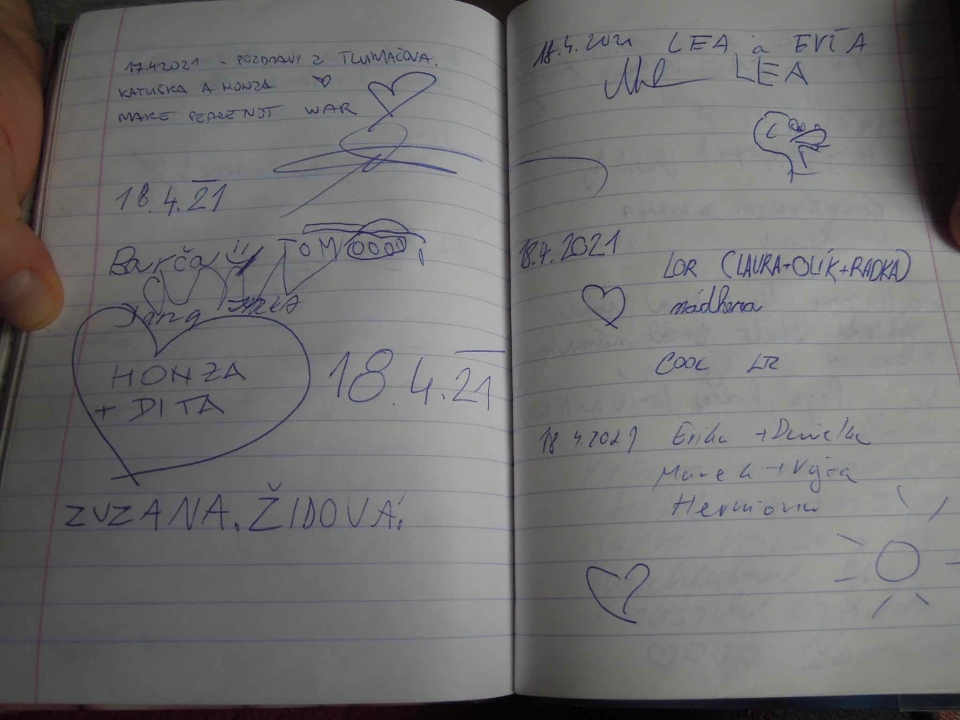 17.4.2021 - POZDRAVY Z TLUMAČOVA.
KATUŠKA A HONZA
MAKE PEACE NOT WAR
18.4.21
Barča TOM
HONZA
+ DITA
18.4.21
ZUZANA. ŽIDOVÁ.
18.4.2021 LEA a EVČA
LEA
18.4.2021
LOR (LAURA+OLÍK+RADKA)
nádhera
COOL
18.4.2021 Erika + Danielka
Marek +